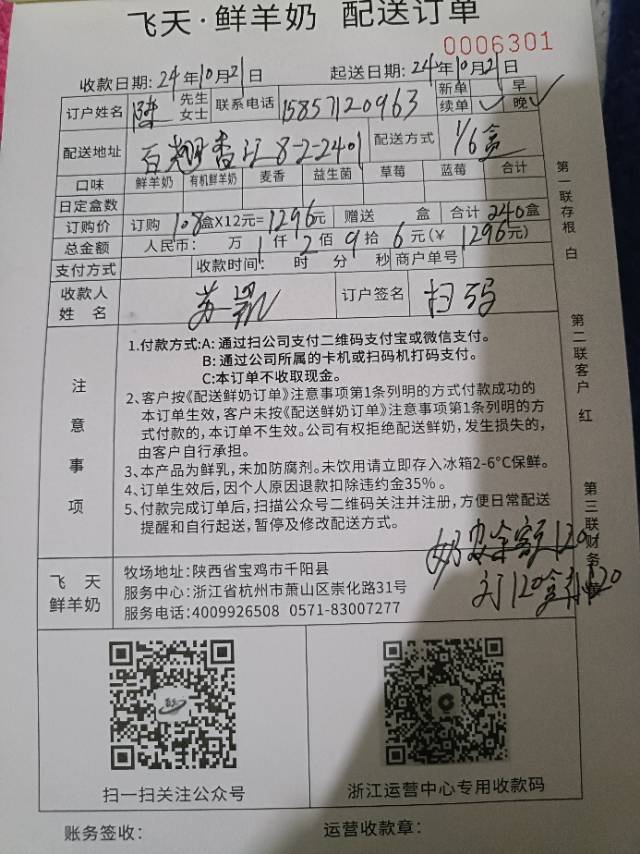 飞天·鲜羊奶 配送订单
0006301
收款日期: 24年10月21日 起送日期: 24年10月21日
订户姓名 陈 先生 女士 联系电话 15857120963 新单 早
续单 ✓ 晚 ✓
配送地址 百翘香江8-2-2401 配送方式 1/6盒
口味 鲜羊奶 有机鲜羊奶 麦香 益生菌 草莓 蓝莓 合计
日定盒数
订购价 订购 108盒X12元=1296元 赠送 盒 合计240盒
总金额 人民币: 万 1仟2佰9拾6元(¥ 1296元)
支付方式 收款时间: 时 分 秒 商户单号
收款人姓名 苏凯 订户签名 扫码
注意事项
1.付款方式:A: 通过扫公司支付二维码支付宝或微信支付。
B: 通过公司所属的卡机或扫码机打码支付。
C:本订单不收取现金。
2、客户按《配送鲜奶订单》注意事项第1条列明的方式付款成功的
本订单生效,客户未按《配送鲜奶订单》注意事项第1条列明的方
式付款的,本订单不生效。公司有权拒绝配送鲜奶,发生损失的,
由客户自行承担。
3、本产品为鲜乳,未加防腐剂。未饮用请立即存入冰箱2-6°C保鲜。
4、订单生效后,因个人原因退款扣除违约金35%。
5、付款完成订单后,扫描公众号二维码关注并注册,方便日常配送
提醒和自行起送,暂停及修改配送方式。
奶 余额120
订120盒 120
飞天鲜羊奶
牧场地址:陕西省宝鸡市千阳县
服务中心:浙江省杭州市萧山区崇化路31号
服务电话:4009926508 0571-83007277
扫一扫关注公众号 浙江运营中心专用收款码
账务签收: 运营收款章:
第一联存根 白
第二联客户 红
第三联财务